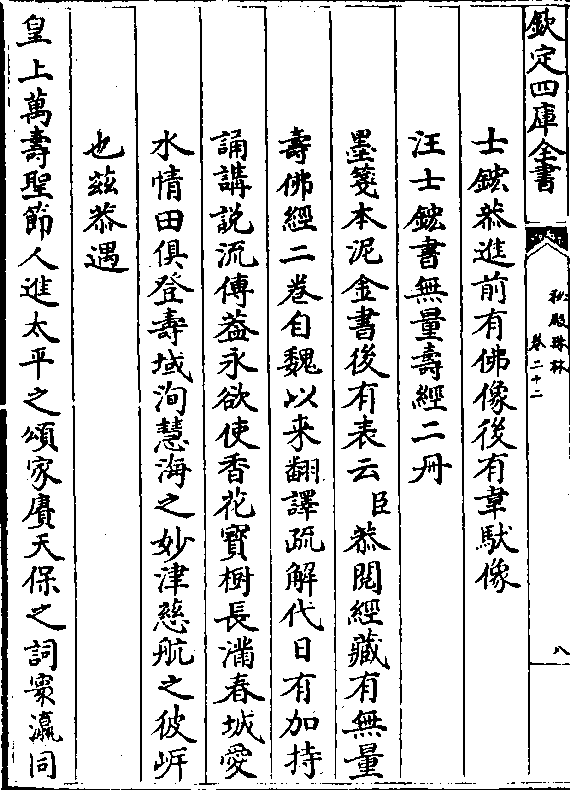 欽定四庫全書
秘殿珠林
卷二十二
八
士鋐恭進前有佛像後有韋馱像
汪士鋐書無量壽經二冊
墨箋本泥金書後有表云臣恭閱經藏有無量
壽佛經二卷自魏以來翻譯疏解代日有加持
誦講說流傳益永欲使香花寳樹長滿春城愛
水情田俱登壽域洵慧海之妙津慈航之彼岍
也茲恭遇
皇上萬壽聖節人進太平之頌家賡天保之詞寰瀛同